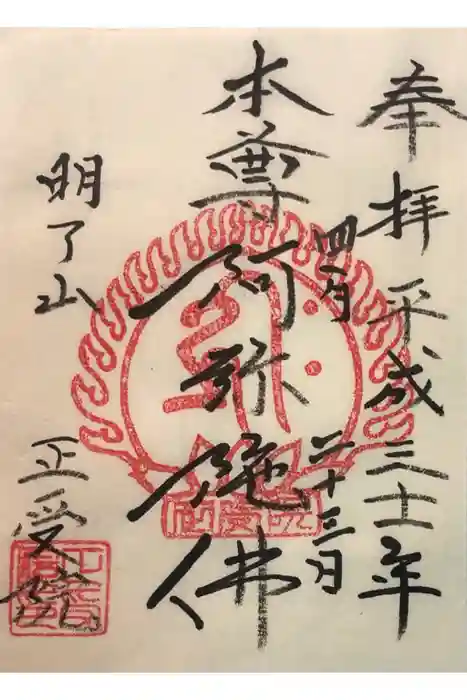 奉拝 平成三十一年
四月二十三日
本尊 阿弥陀佛
明了山 正受院